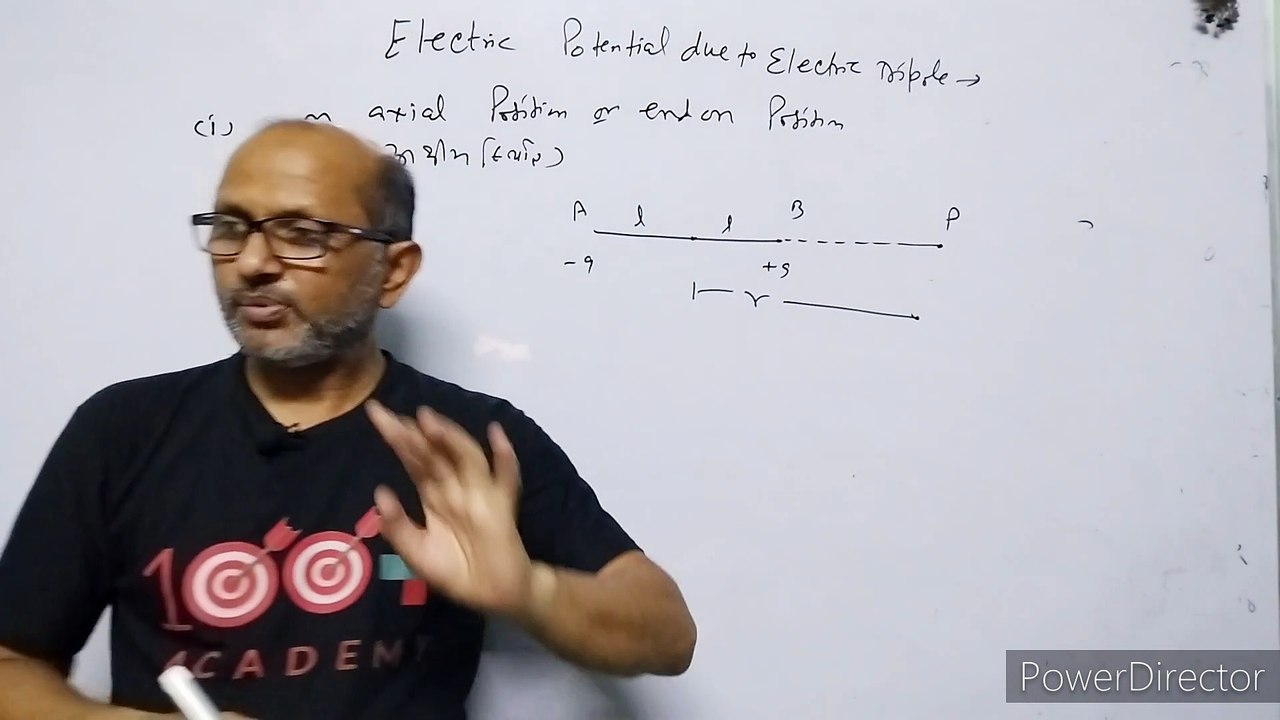 Electric Potential due to Electric Dipole →
(i) axial Position or end on Position
A l l B P
-q +q
r
100+
ACADEMY
PowerDirector